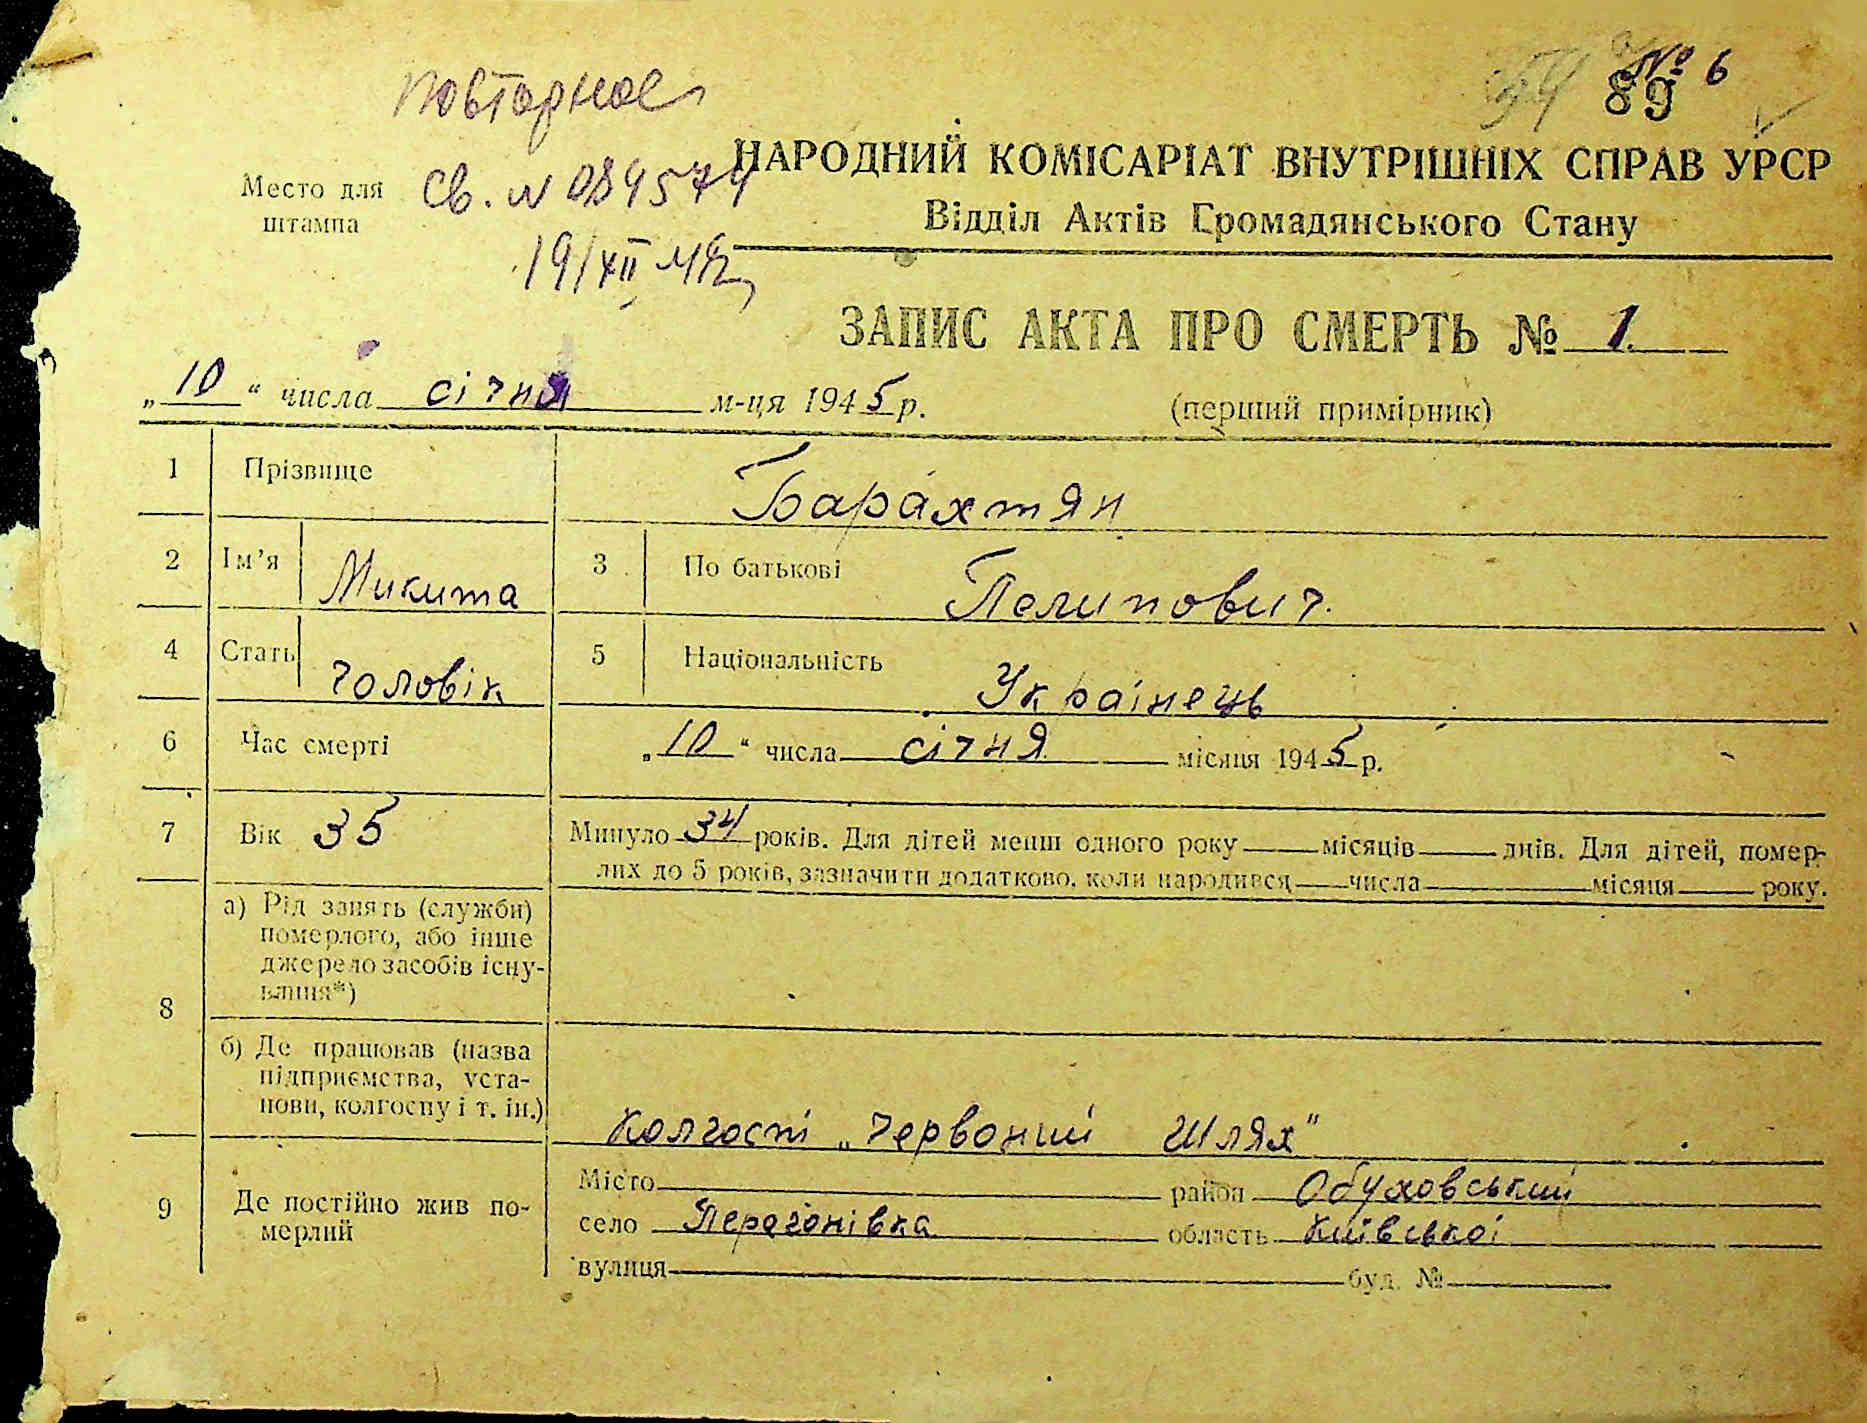 повторное
№ 6
89
Место для
штампа
Св. N 084574
19/XII
НАРОДНИЙ КОМІСАРІАТ ВНУТРІШНІХ СПРАВ УРСР
Відділ Актів Громадянського Стану
ЗАПИС АКТА ПРО СМЕРТЬ № 1.
„10“ числа січня м-ця 1945 р.
(перший примірник)
1 Прізвище Барахтян
2 Ім’я Микита 3 По батькові Пелипович.
4 Стать чоловік 5 Національність Українець
6 Час смерті „10“ числа січня місяця 1945 р.
7 Вік 35 Минуло 34 років. Для дітей менш одного року місяців днів. Для дітей, помер-
лих до 5 років, зазначити додатково, коли народився числа місяця року.
8 а) Рід занять (служби)
померлого, або інше
джерело засобів існу-
вання*)
б) Де працював (назва
підприємства, уста-
нови, колгоспу і т. ін.)
Колгоспі „Червоний Шлях"
9 Де постійно жив по-
мерлий
Місто район Обуховський
село Перегонівка область Київської
вулиця буд. №